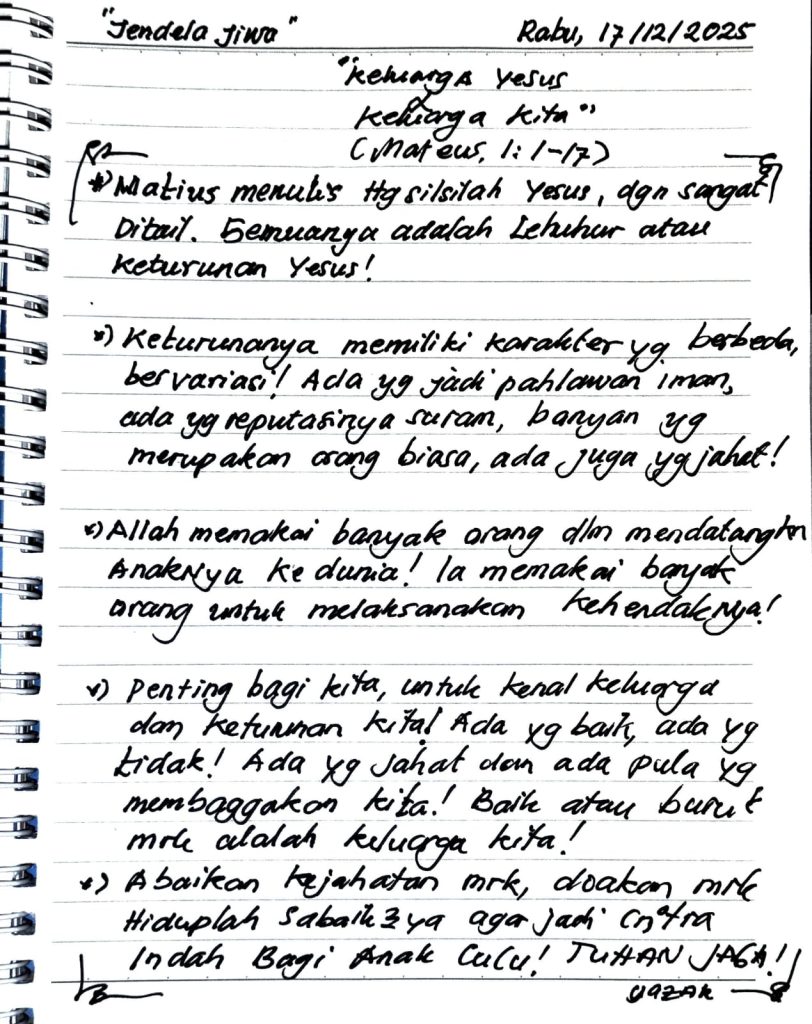 "Jendela Jiwa" Rabu, 17/12/2025
"Keluarga Yesus
Keluarga Kita"
(Mateus, 1:1-17)
*) Matius menulis ttg silsilah Yesus, dgn sangat
Ditail. Semuanya adalah Leluhur atau
keturunan Yesus!
*) Keturunanya memiliki karakter yg berbeda,
bervariasi! Ada yg jadi pahlawan iman,
ada yg reputasinya suram, banyan yg
merupakan orang biasa, ada juga yg jahat!
*) Allah memakai banyak orang dlm mendatangkn
AnakNya ke dunia! Ia memakai banyak
orang untuk melaksanakan KehendakNya!
*) Penting bagi kita, untuk kenal keluarga
dan keturunan kita! Ada yg baik, ada yg
tidak! Ada yg jahat dan ada pula yg
membaggakan kita! Baik atau buruk
mrk adalah keluarga kita!
*) Abaikan kejahatan mrk, doakan mrk
Hiduplah sabaik2 ya agar jadi
Indah Bagi Anak Cucu! TUHAN JAGA!